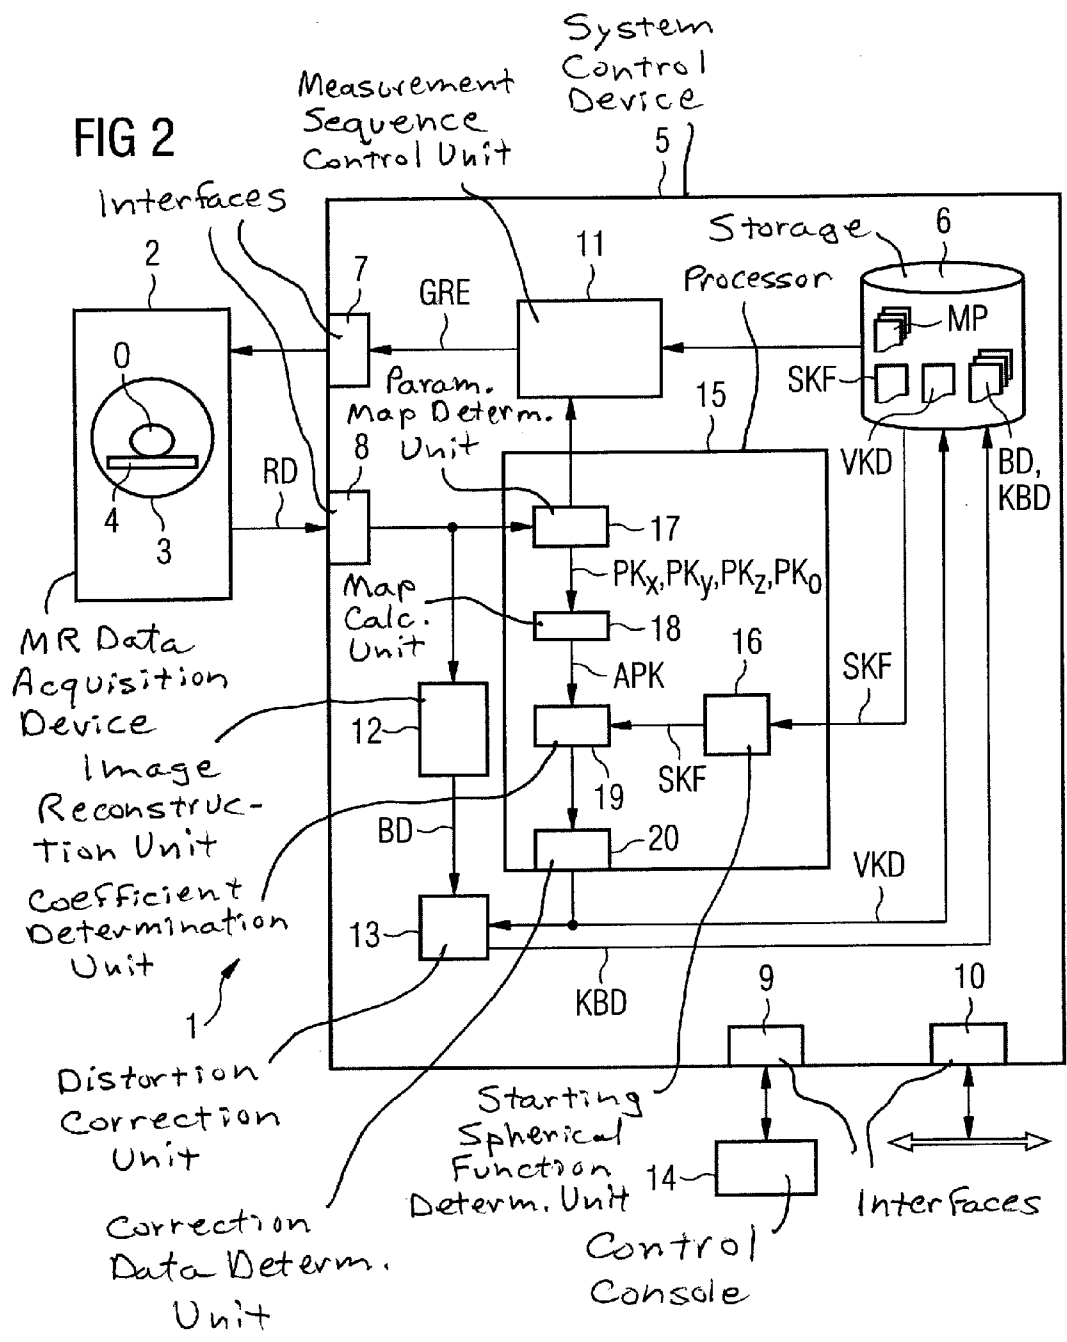 System
Control
Device
Measurement
Sequence
Control Unit
FIG 2
5
Interfaces
Storage
6
11
Processor
2
7
GRE
MP
O
Param.
Map Determ.
Unit
SKF
15
8
VKD
BD,
KBD
RD
4
3
17
PKx,PKy,PKz,PKo
Map
Calc.
Unit
18
16
MR Data
Acquisition
Device
APK
SKF
12
Image
Reconstruc-
tion Unit
SKF
19
BD
20
VKD
Coefficient
Determination
Unit
13
1
KBD
9
10
Distortion
Correction
Unit
Starting
Spherical
Function
Determ. Unit
14
Interfaces
Correction
Data Determ.
Unit
Control
Console